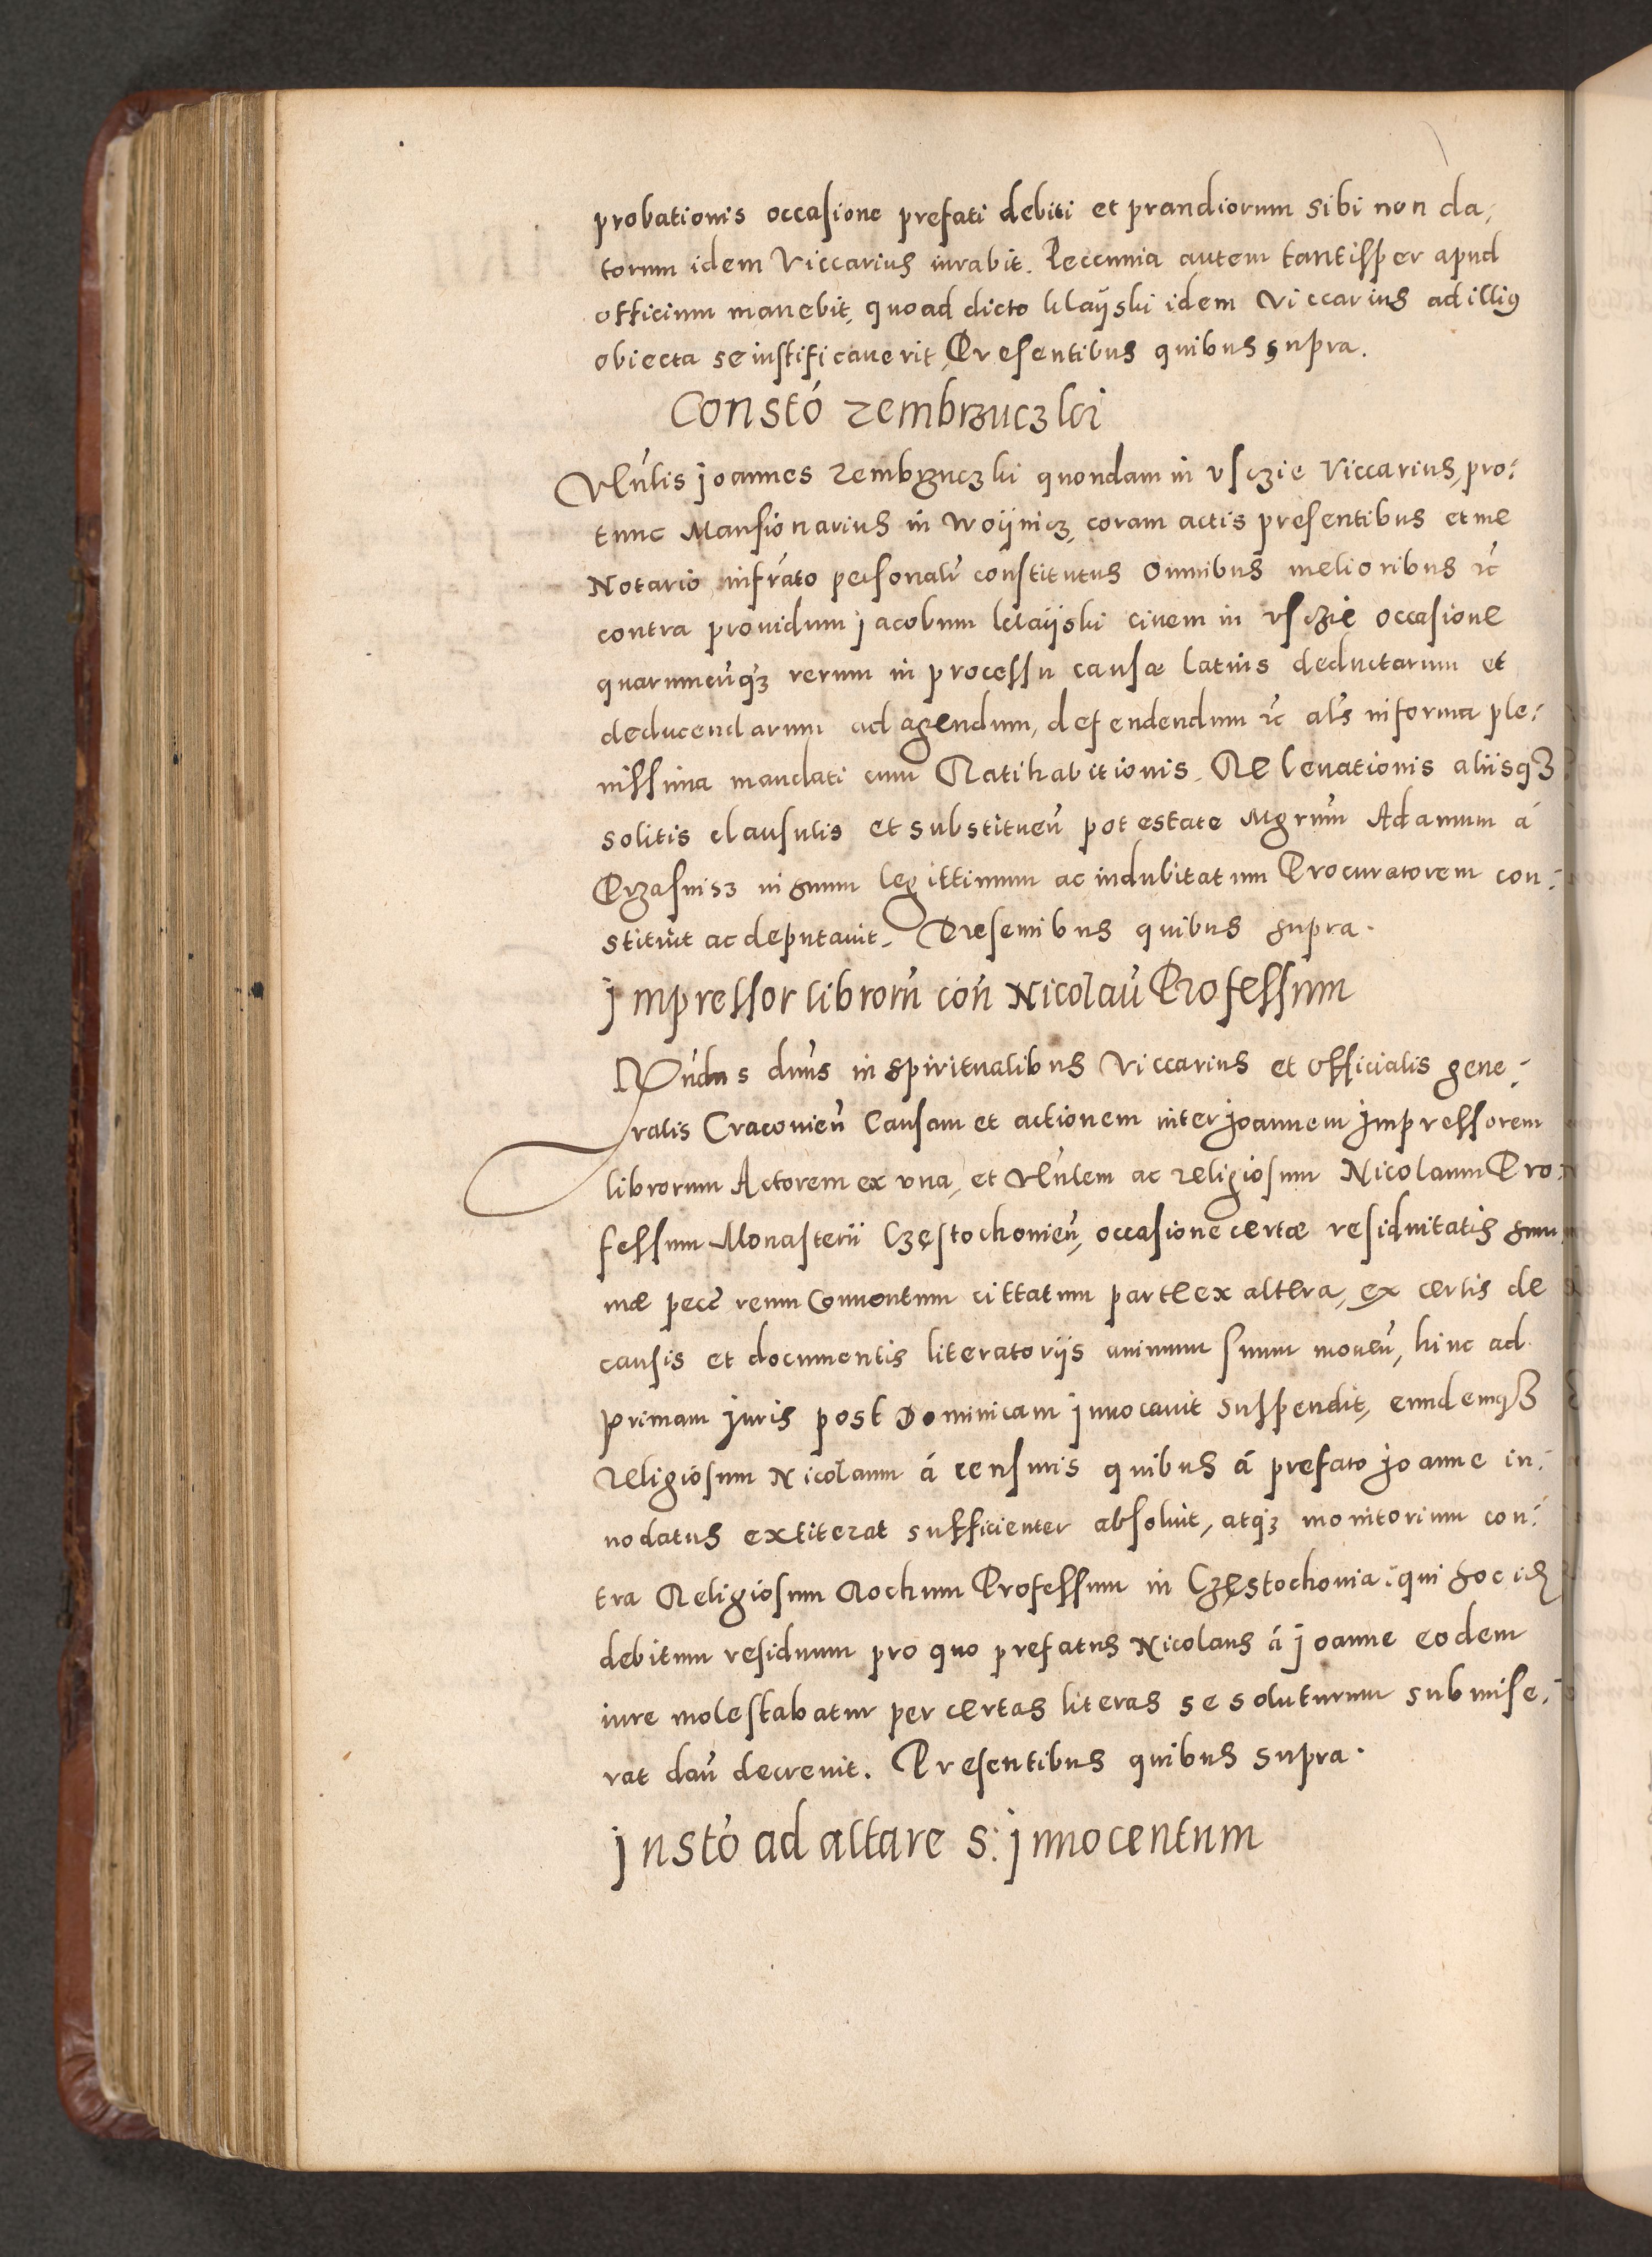 probationis occasione prefati debiti et prandiorum sibi non da,
torum idem Viccarius iurabit. Peccunia autem tantisper apud
officium manebit, quoad dicto Klaijski idem Viccarius ad illius
obiecta se iustificauerit, Presentibus quibus supra.
Constó Zembrzuczki
Vn̄lis Joannes Zembrzuczki quondam in Vsczie Viccarius, pro:
tunc Mansionarius in Woijnicz, coram actis presentibus et me
Notario infrāto personalr̄ constitutus Omnibus melioribus rc̄
contra prouidum Jacobum Klaijski ciuem in Vsczie occasione
quarumcūqȝ rerum in processu causæ latius deductarum et
deducendarum ad agendum, defendendum rc̄ als̄ in forma ple:
nissima mandati cum Ratihabitionis, Releuationis aliisqȝ
solitis clausulis et substituen̄ potestate Mgrūm Adamum á
Przasnisz in suum legittimum ac indubitatum Procuratorem con:
stituit ac deputauit. Presentibus quibus supra.
Jmpressor librorū con̄ Nicolaū Professum
Rn̄dus dnūs in spiritualibus Viccarius et Officialis gene:
ralis Cracouien̄ Causam et actionem inter Joannem Jmpressorem
librorum Actorem ex vna, et Vn̄lem ac religiosum Nicolaum Pro:
fessum Monasterii Częstochouien̄, occasione certæ residuitatis sum
mæ pecc̄ reum Conuentum cittatum parte ex altera, ex certis de
causis et documentis literatoriis animum suum mouen̄, hinc ad
primam Juris post Dominicam Jnuocauit suspendit, eundemqȝ
religiosum Nicolaum á censuris quibus á prefato Joanne in:
nodatus extiterat sufficienter absoluit, atqȝ monitorium con:
tra Religiosum Rochum Professum in Częstochouia: qui hoc id
debitum residuum pro quo prefatus Nicolaus á Joanne eodem
iure molestabatur per certas literas se soluturum submise:
rat dan̄ decreuit. Presentibus quibus supra.
Jnstó ad altare S: Jnnocentum